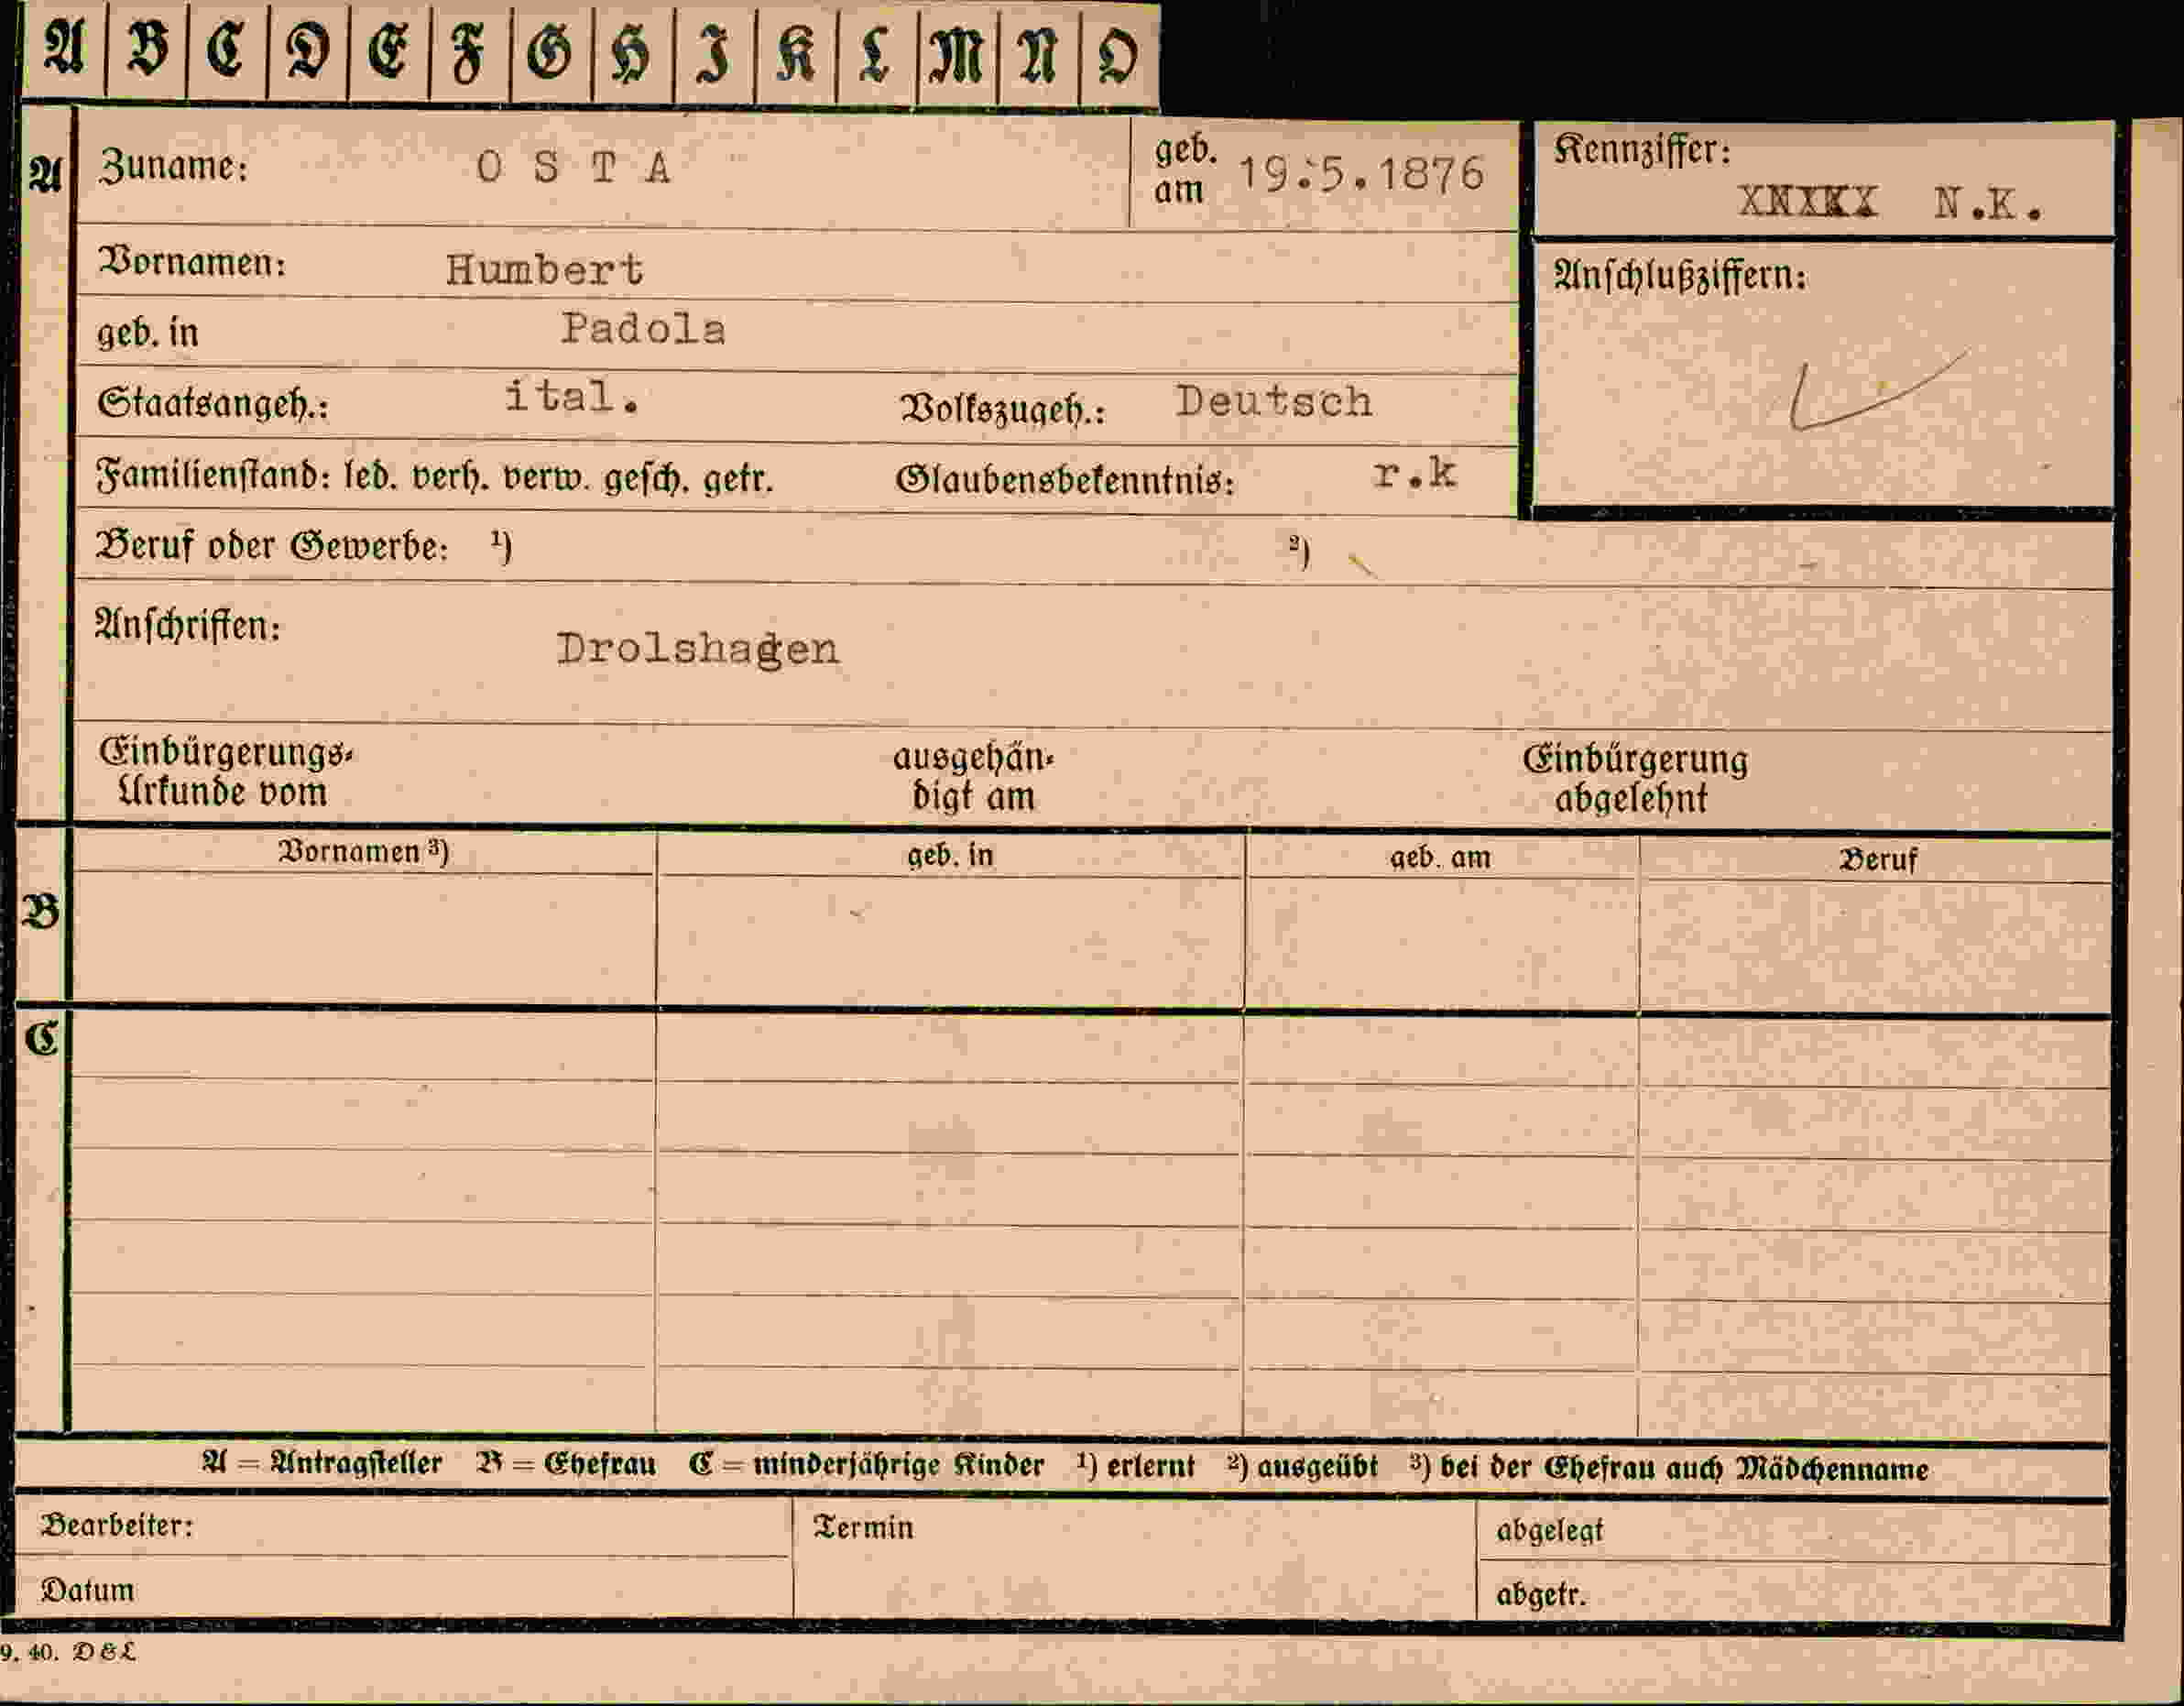 A B C D E F G H I K L M N O
A Zuname: O S T A geb. am 19.5.1876 Kennziffer:
N.K.
Vornamen: Humbert Anschlußziffern:
geb. in Padola
Staatsangeh.: ital. Volkszugeh.: Deutsch
Familienstand: led. verh. verw. gesch. getr. Glaubensbekenntnis: r.k
Beruf oder Gewerbe: ¹) ²)
Anschriften: Drolshagen
Einbürgerungs- ausgehän- Einbürgerung
Urkunde vom digt am abgelehnt
Vornamen ³) geb. in geb. am Beruf
B
C
A = Antragsteller B = Ehefrau C = minderjährige Kinder ¹) erlernt ²) ausgeübt ³) bei der Ehefrau auch Mädchenname
Bearbeiter: Termin abgelegt
Datum abgetr.
9. 40. D & L